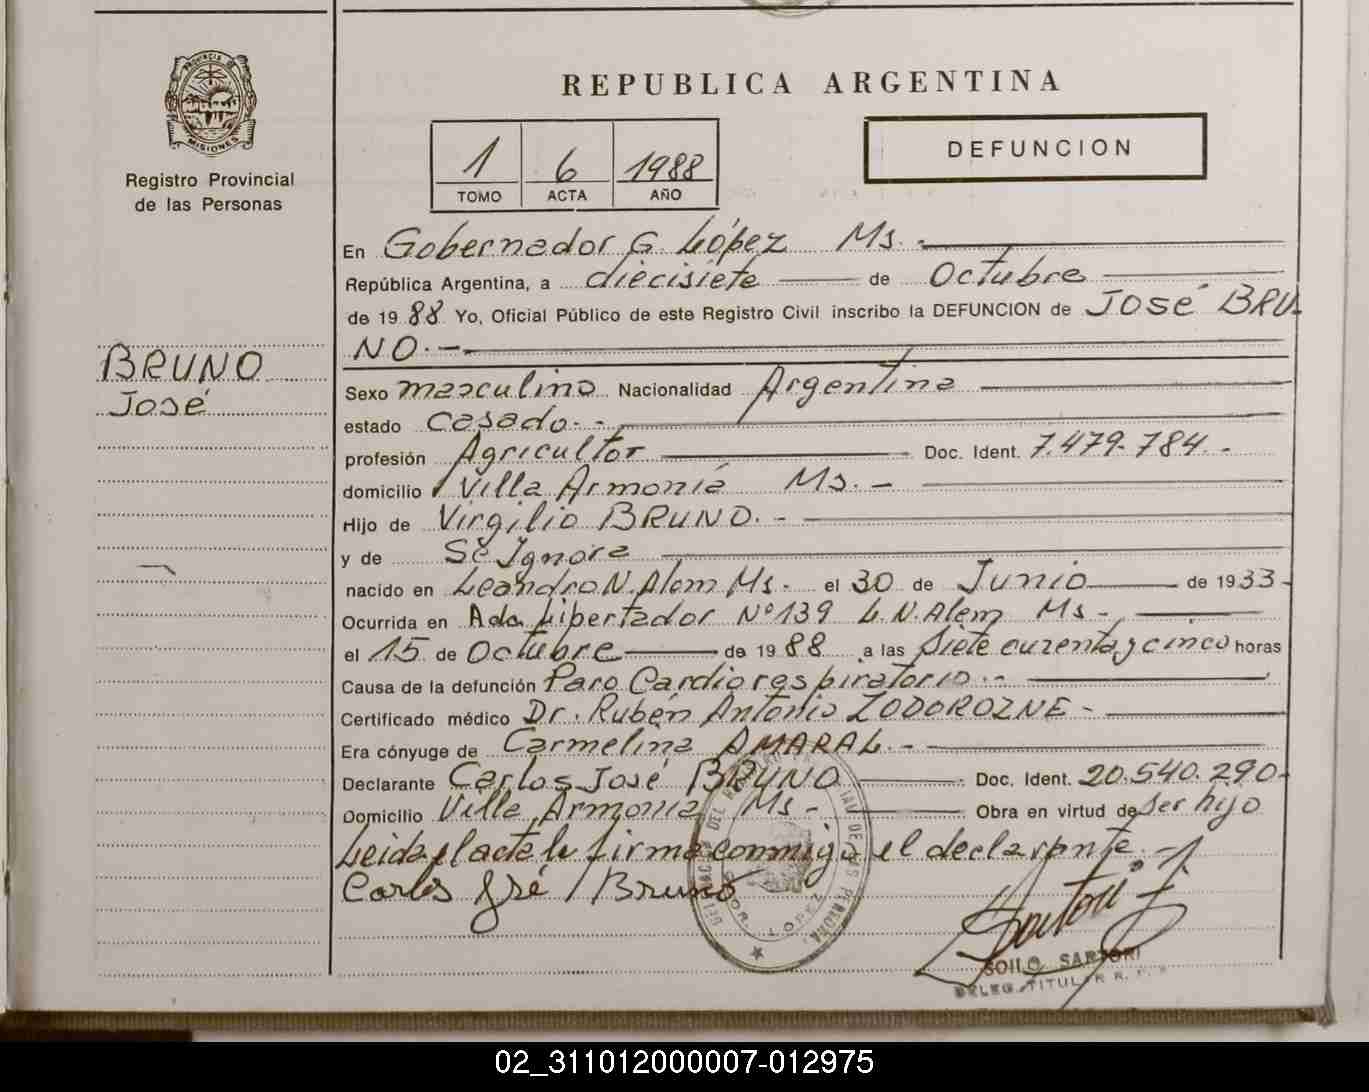 PROVINCIA DE
MISIONES
Registro Provincial
de las Personas
REPUBLICA ARGENTINA
1 6 1988
TOMO ACTA AÑO
DEFUNCION
En Gobernador G. López Ms.-
República Argentina, a diecisiete de Octubre
de 1988 Yo, Oficial Público de este Registro Civil inscribo la DEFUNCION de José BRU-
NO.-
BRUNO
José
Sexo masculino Nacionalidad Argentina
estado casado.-
profesión Agricultor Doc. Ident. 7.479.784.-
domicilio Villa Armonía Ms.-
Hijo de Virgilio BRUNO.-
y de Se Ignora
nacido en Leandro N. Alem Ms.- el 30 de Junio de 1933-
Ocurrida en Ada Libertador Nº 139 L.N. Alem Ms-
el 15 de Octubre de 1988 a las siete curenta y cinco horas
Causa de la defunción Paro Cardiorespiratorio.-
Certificado médico Dr. Ruben Antonio ZODOROZNE-
Era cónyuge de Carmelina AMARAL.-
Declarante Carlos José BRUNO Doc. Ident. 20.540.290-
Domicilio Villa Armonia Ms- Obra en virtud de ser hijo
Leida el acta la firma conmigo el declarante.-
Carlos José Bruno
GOR. LOPEZ
SOILO SARTORI
DELEG. TITULAR R. P.
02_311012000007-012975